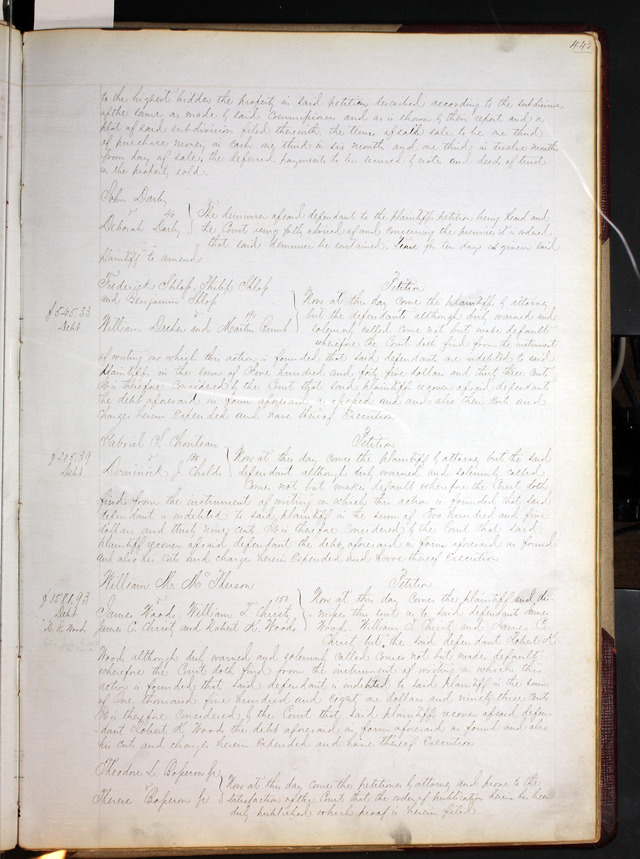 443
to the highest bidder the property in said petition described according to the subdivision
of the same as made by said Commissioners and as is shown by their report and a
plat of said subdivision filed therewith the terms of said sale to be one third
of purchase money in cash one third in six months and one third in twelve months
from day of sale, the deferred payments to be secured by note and deeds of trust
on the property sold.
John Darby
v 40
Deborah Darby
The demurrer of said defendant to the plaintiffs petition being heard and
the Court being fully advised of and concerning the premises it is ordered
that said demurrer be sustained. Leave for ten days is given said
plaintiff to amend
Frederick Shlap, Philip Shlap
and Benjamin Shlap
v
William Dreher and Martin
Petition
$545.33
Debt
Now at this day come the plaintiffs by attorney
but the defendants although duly warned and
solemnly called come not but make default
wherefore the Court doth find from the instrument
of writing on which this action is founded that said defendants are indebted to said
plaintiffs in the sum of Five hundred and forty five dollars and thirty three cents
It is therefore Considered by the Court that said plaintiffs recover of said defendants
the debt aforesaid in form aforesaid as found and also their costs and
charges herein Expended and have thereof Execution
Gabriel S. Chouteau
v
Dominick J Childs
Petition
$205.39
Debt
Now at this day comes the plaintiff by attorney but the said
defendant although duly warned and solemnly called
Comes not but makes default wherefore the Court doth
find from the instrument of writing on which this action is founded that said
defendant is indebted to said plaintiff in the sum of Two hundred and five
dollars and thirty nine cents. It is therefore Considered by the Court that said
plaintiff recover of said defendant the debt aforesaid in form aforesaid as found
and also his costs and charges herein Expended and have thereof Execution
William M. McPherson
v 150
James Woods, William T. Christy,
James C. Christy and Robert K. Woods
Petition
$1581.93
Debt
R. K. Woods
Now at this day come the plaintiff and dis-
misses this suit as to said defendants James
Woods, William T Christy and James C.
Christy but the said defendant Robert K.
Woods although duly warned and solemnly called comes not but makes default
wherefore the Court doth find from the instrument of writing on which this
action is founded that said defendant is indebted to said plaintiff in the sum
of One thousand five hundred and eighty one dollars and ninety three cents
It is therefore Considered by the Court that said plaintiff recover of said defen-
dant Robert K Woods the debt aforesaid in form aforesaid as found and also
his costs and charges herein Expended and have thereof Execution
Theodore L. Boperon Jr
v
Therese Boperon Jr
Now at this day comes the petitioner by attorney and proves to the
satisfaction of the Court that the order of publication herein has been
duly published which proof is herein filed